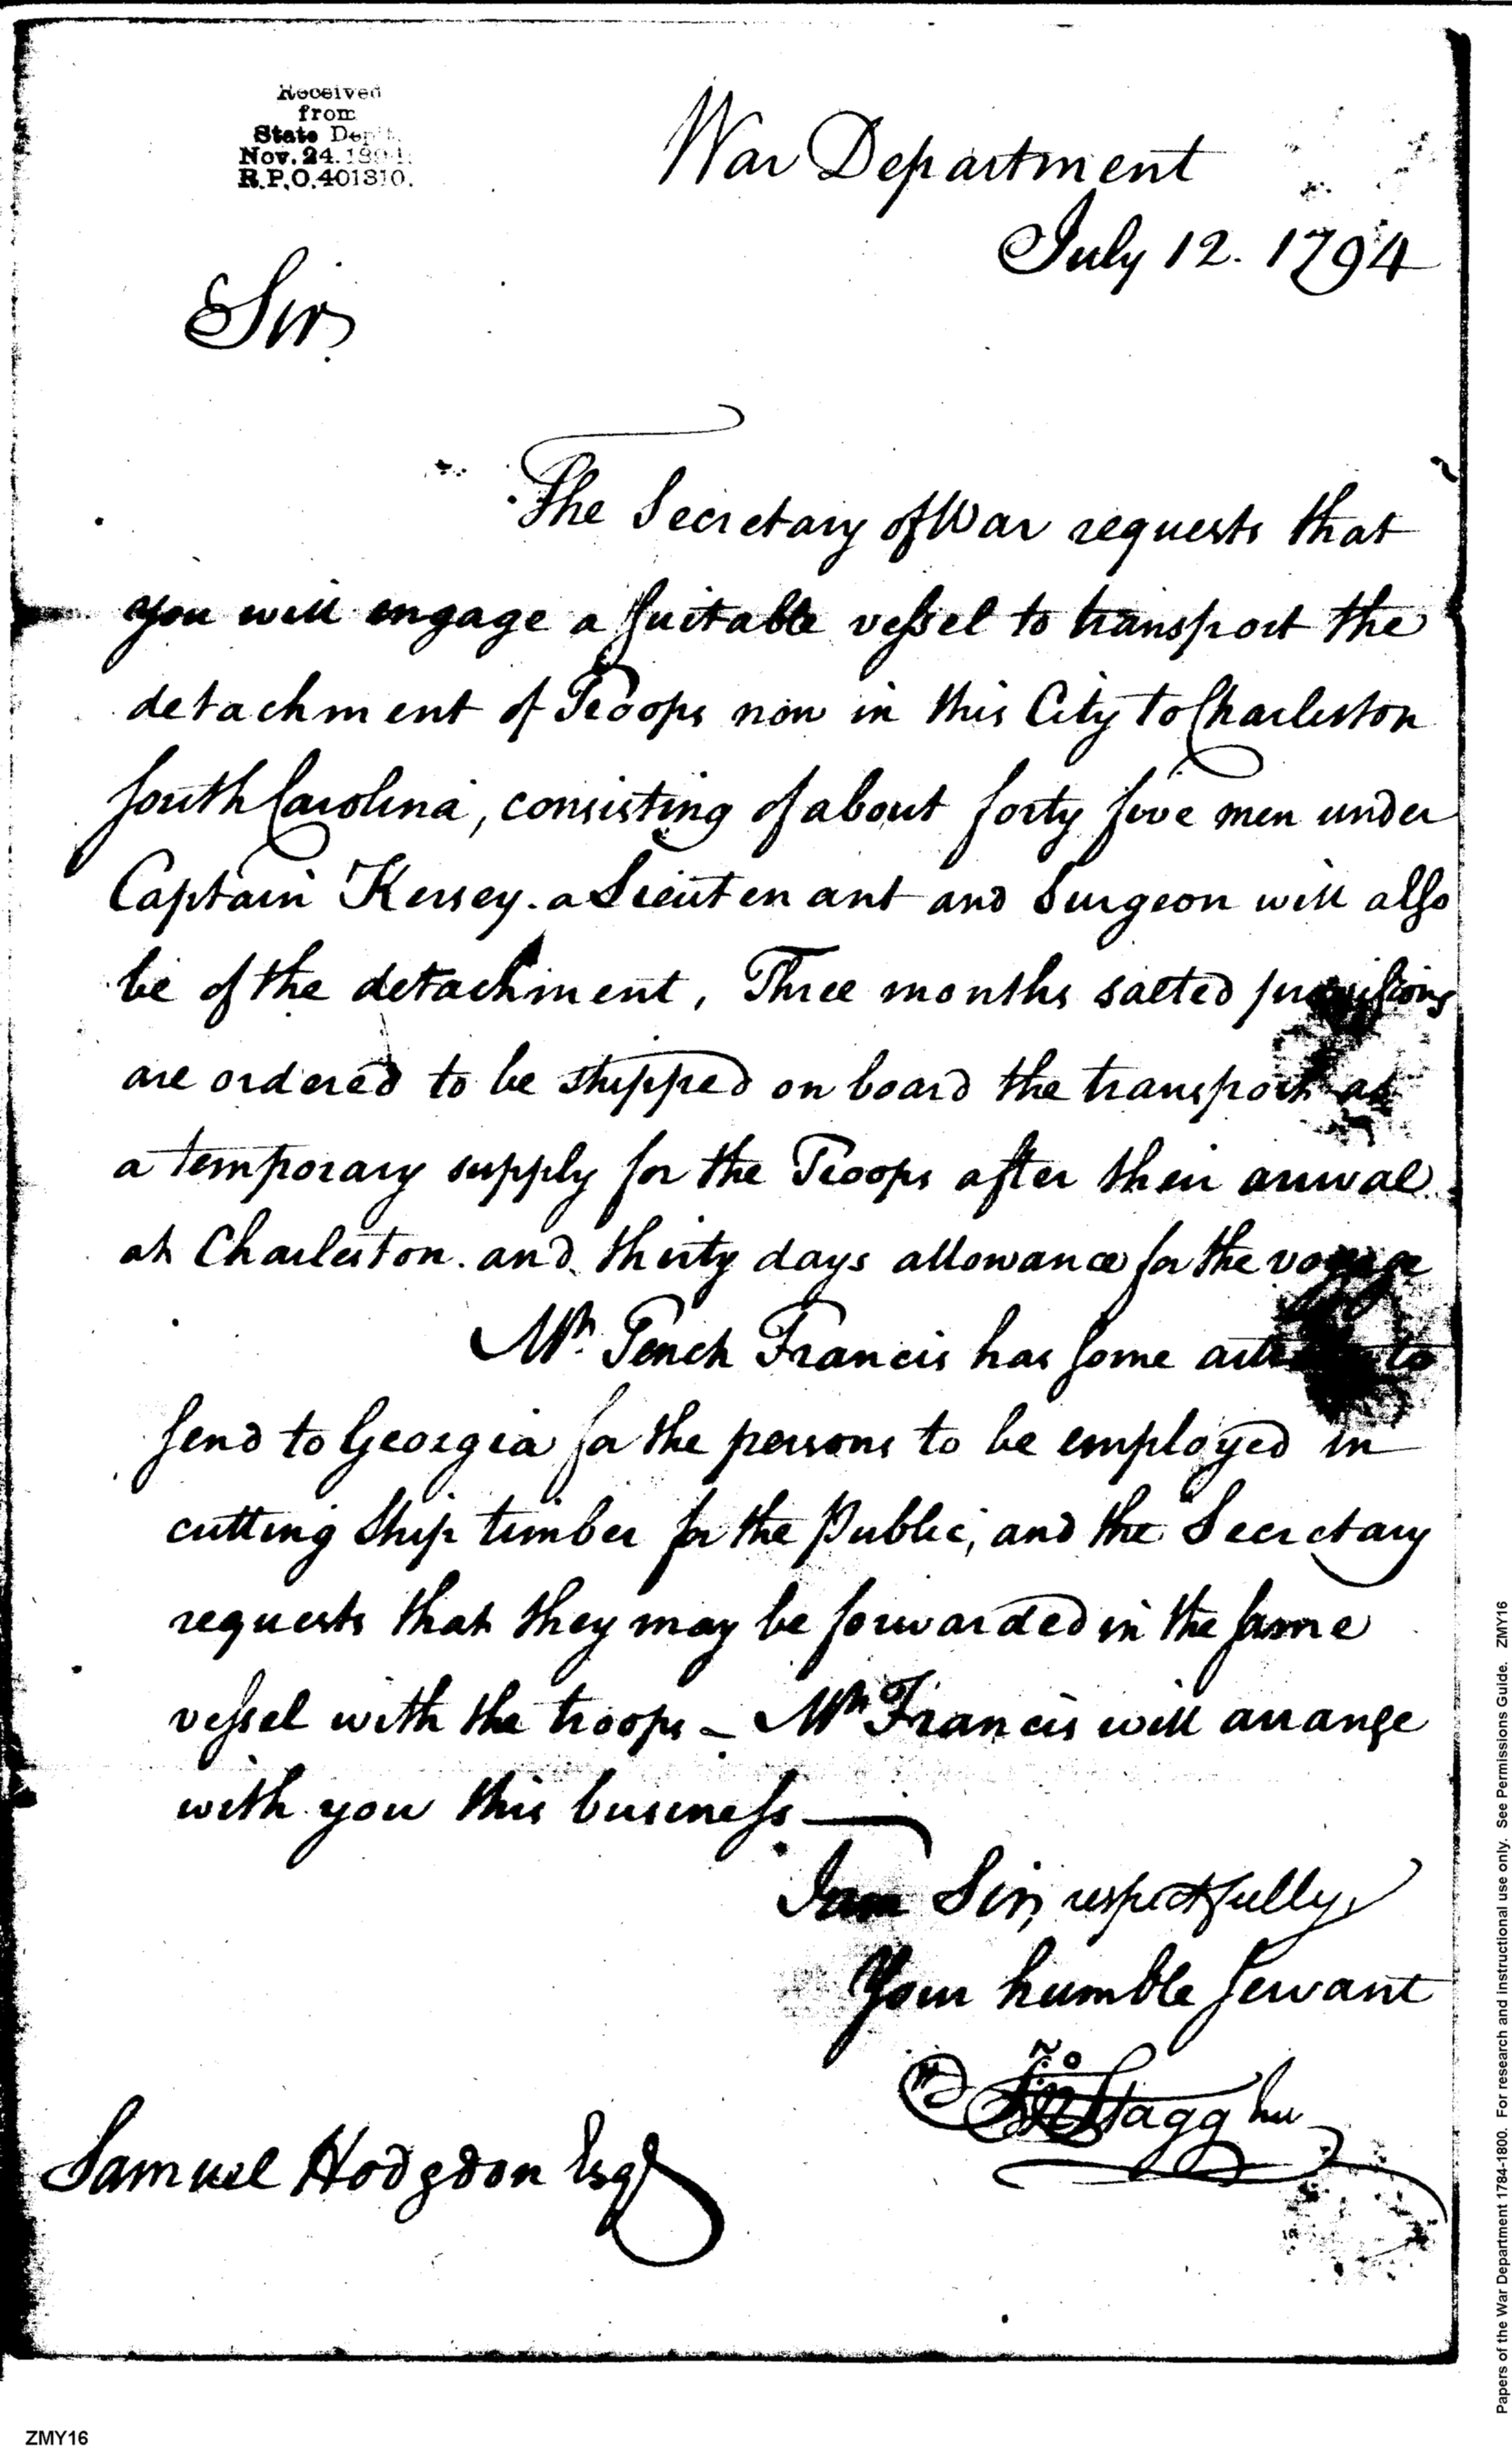 Received
from
State Dep't.
Nov. 24. 1894.
R.P.O. 401310.
War Department
July 12. 1794
Sir,
The Secretary of War requests that
you will engage a suitable vessel to transport the
detachment of Troops now in this City to Charleston
South Carolina, consisting of about forty five men under
Captain Kersey. a Lieutenant and Surgeon will also
be of the detachment, Three months salted provisions
are ordered to be shipped on board the transport as
a temporary supply for the Troops after their arrival
at Charleston. and thirty days allowance for the voyage
Mr. Tench Francis has some to
send to Georgia for the persons to be employed in
cutting Ship timber for the Public, and the Secretary
requests that they may be forwarded in the same
vessel with the troops - Mr Francis will arrange
with you this business
I am Sir, respectfully,
Your humble servant
Jno Stagg Jur
Samuel Hodgdon Esq
Papers of the War Department 1784-1800. For research and instructional use only. See Permissions Guide. ZMY16
ZMY16